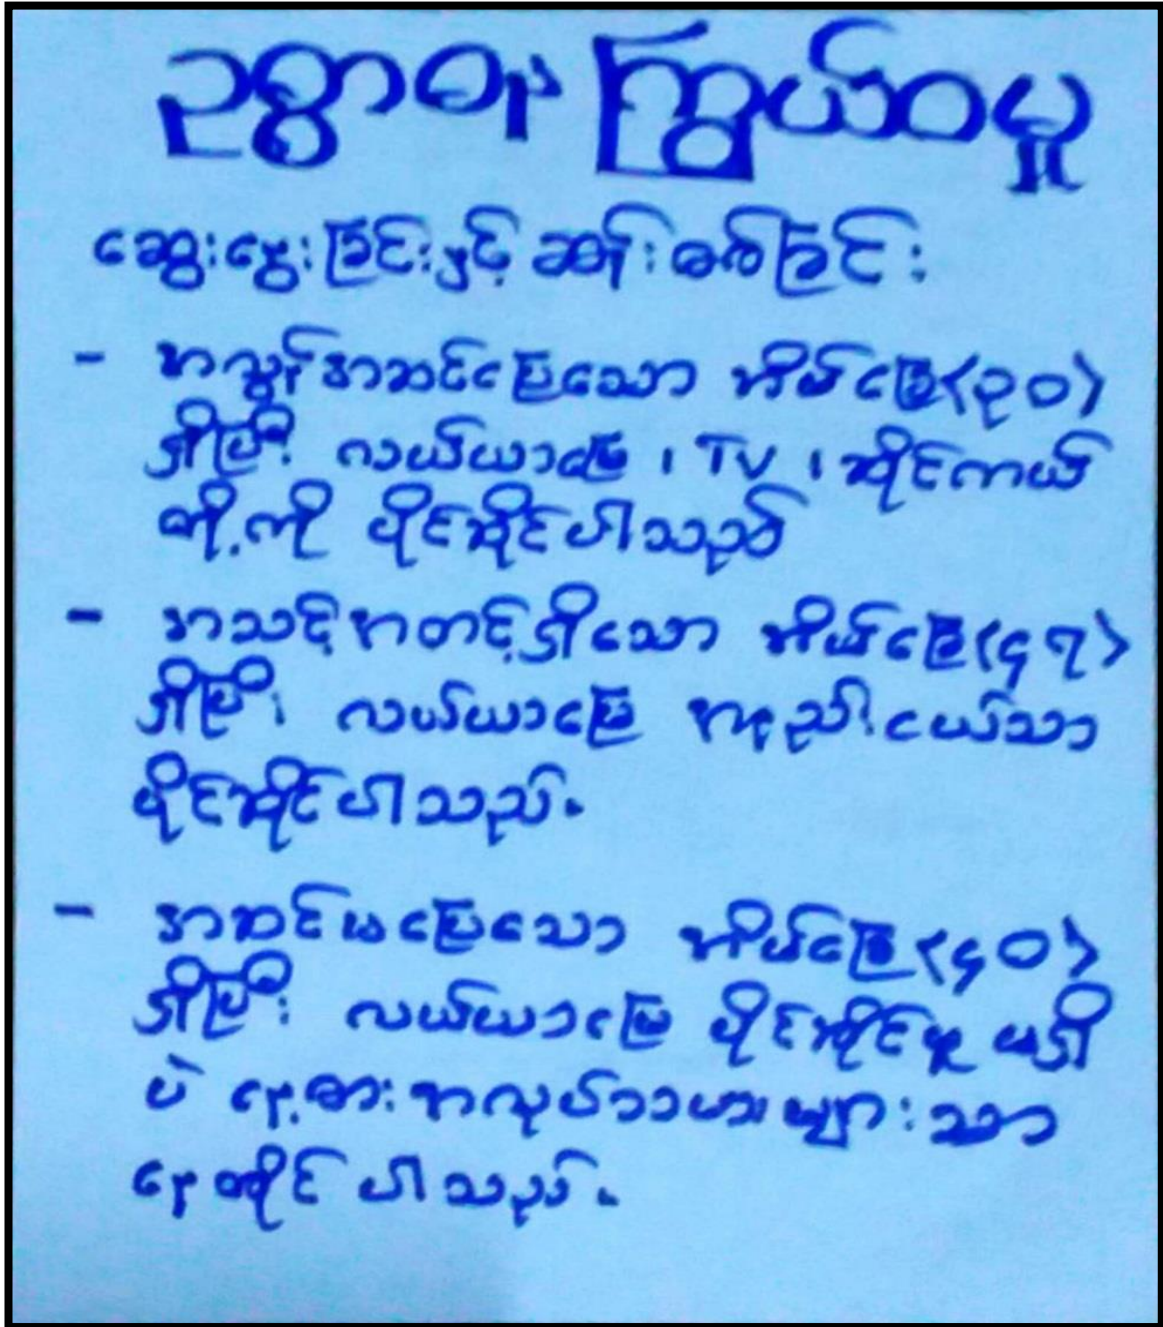 ဥစ္စာဓန ကြွယ်ဝမှု
ဆွေးနွေးခြင်းနှင့် ဆန်းစစ်ခြင်း
- အလွန်အဆင်ပြေသော အိမ်ခြေ(၃၀)
ရှိပြီး လယ်ယာမြေ ၊ TV ၊ ဆိုင်ကယ်
တို့ကို ပိုင်ဆိုင်ပါသည်
- အသင့်အတင့်ရှိသော အိမ်ခြေ(၄၇)
ရှိပြီး လယ်ယာမြေ အနည်းငယ်သာ
ပိုင်ဆိုင်ပါသည်။
- အဆင်မပြေသော အိမ်ခြေ(၄၀)
ရှိပြီး လယ်ယာမြေ ပိုင်ဆိုင်မှု မရှိ
ပဲ နေ့စားအလုပ်သမားများသာ
နေထိုင်ပါသည်။